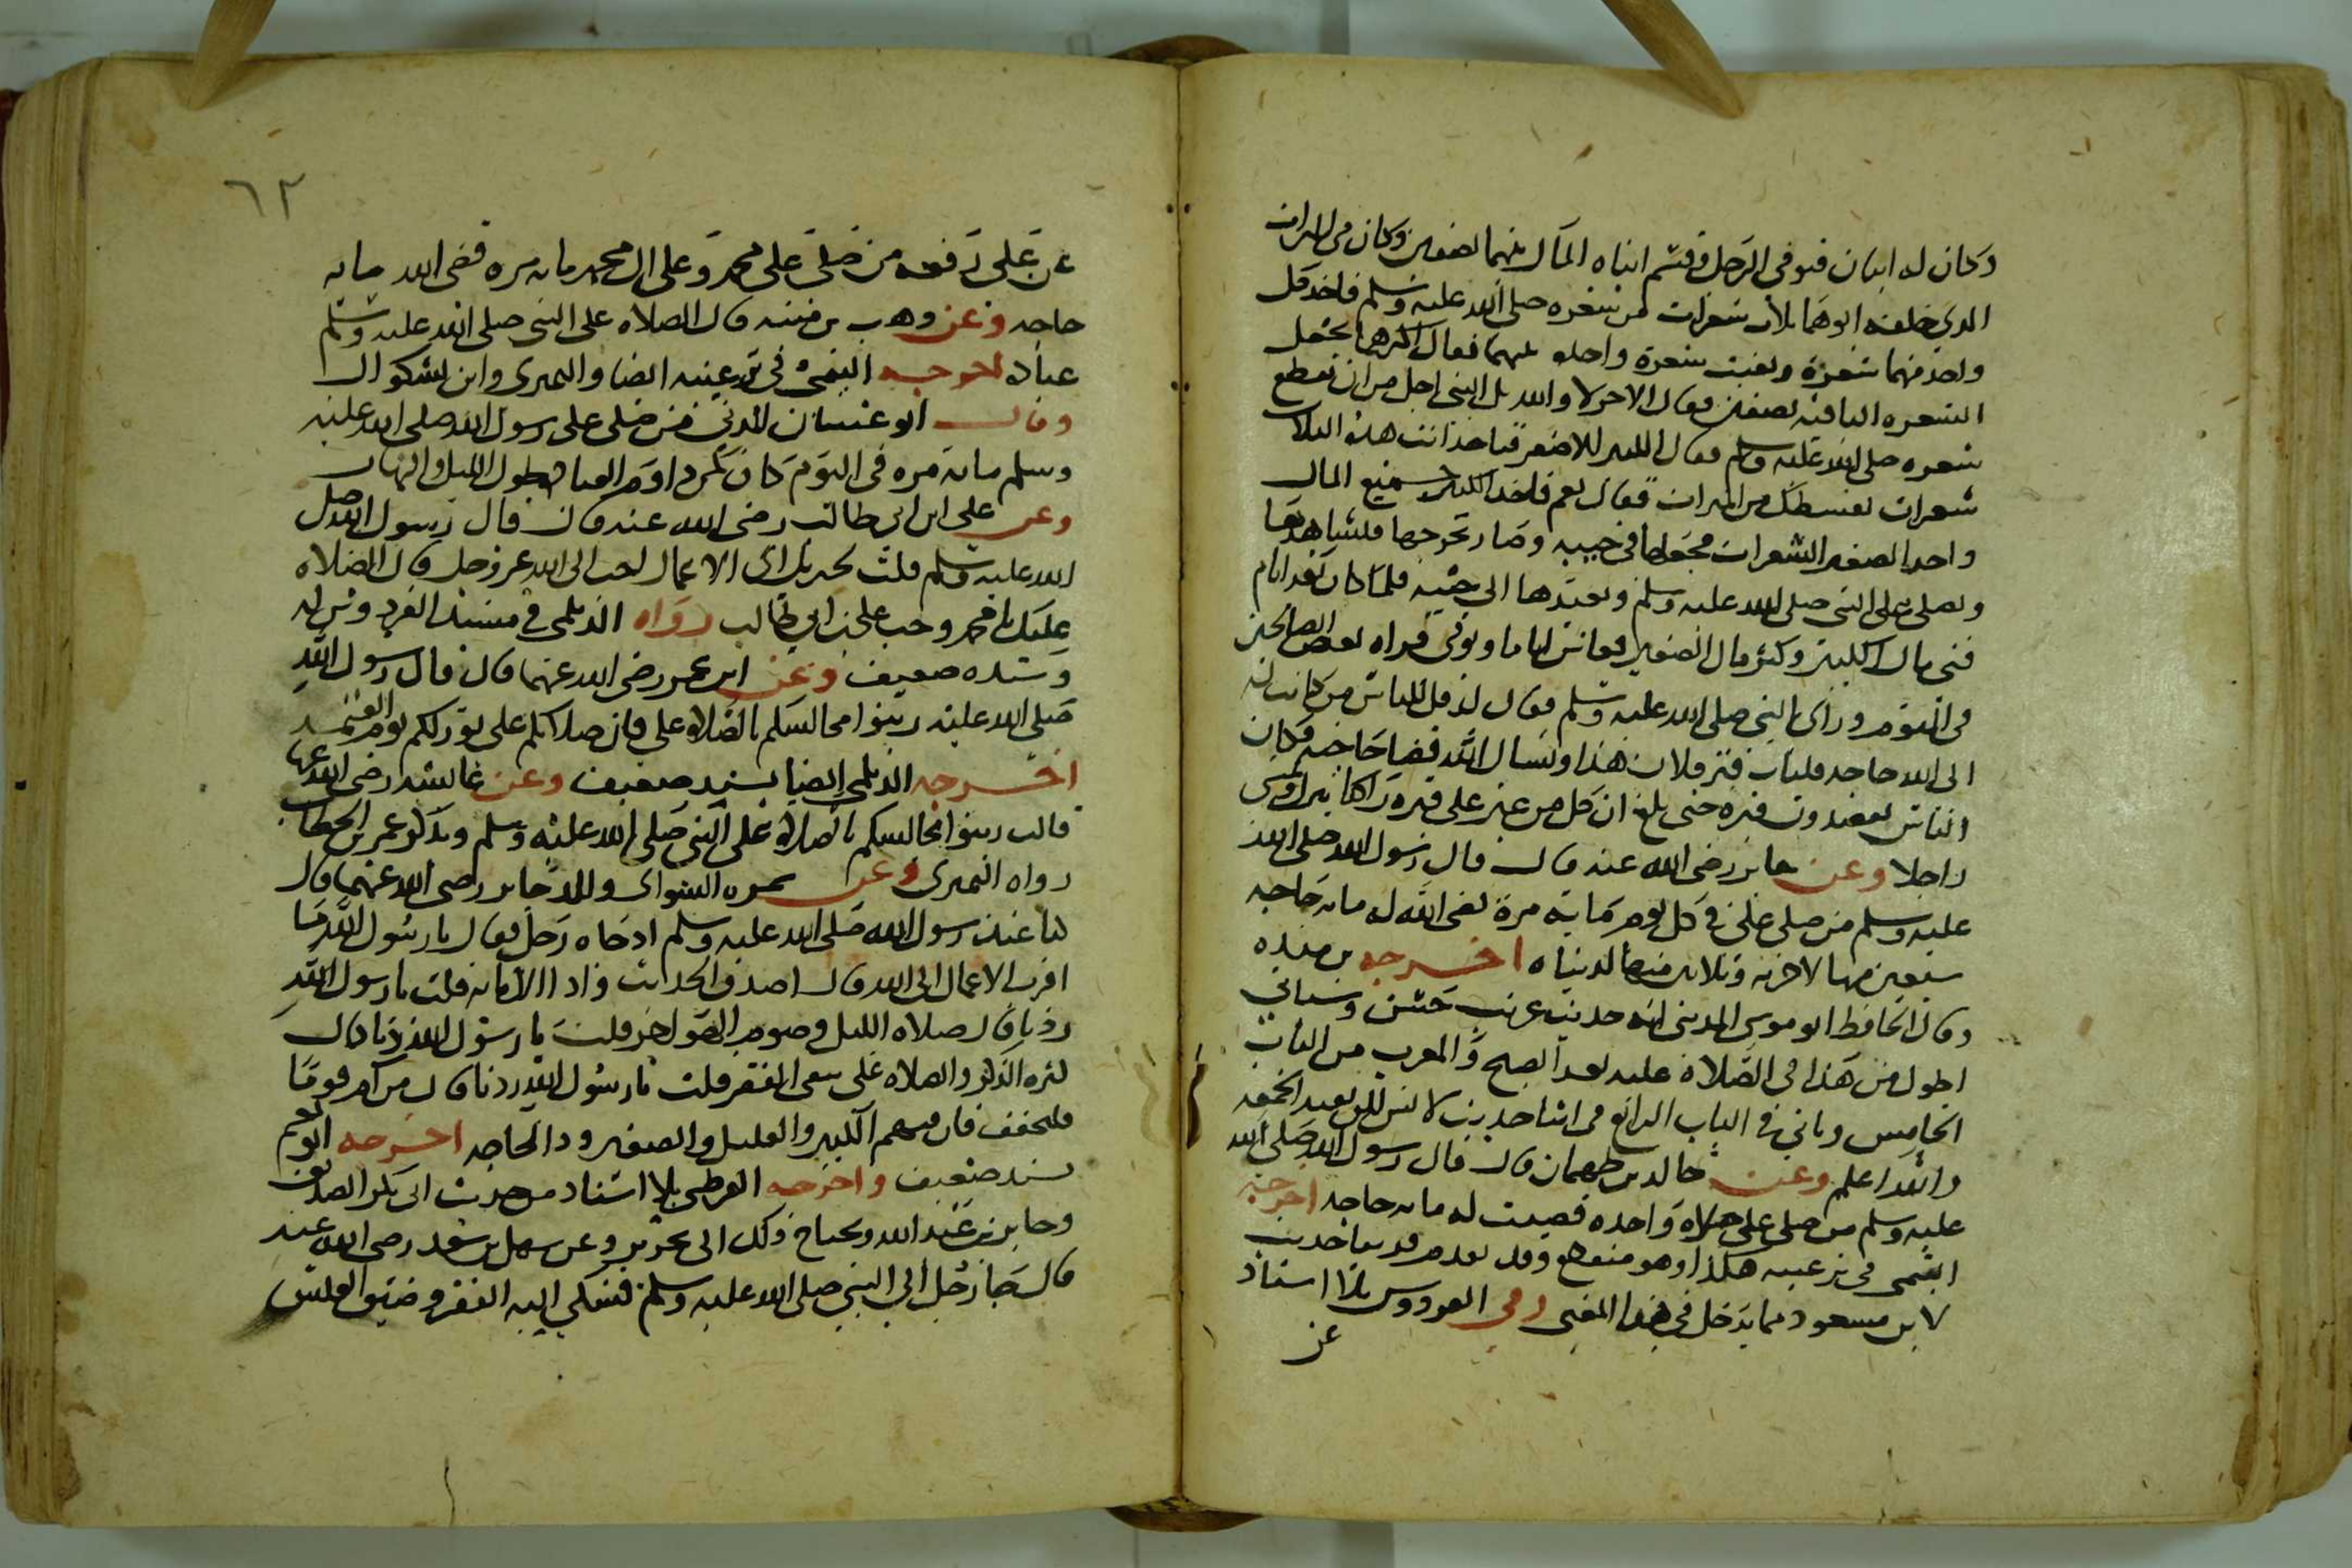 وكان له ابنان فتوفى الرجل وقسم ابناه المال بينهما نصفين وكان في الميراث
الذي خلفه ابوهما ثلاث شعرات من شعره صلى الله عليه وسلم فاخذ كل
واحد منهما شعرة وبقيت شعرة واحده بينهما فقال اكبرهما نجعل
الشعره الباقيه نصفين فقال الاخر لا والله بل النبي اجل من ان يقطع
شعره صلى الله عليه وسلم فقال الكبير للاصغر فتاخذ انت هذه الثلاث
شعرات بقسطك من الميراث فقال نعم فاخذ الكبير جميع المال
واخذ الصغير الشعرات فجعلها في جيبه وصار يخرجها ويشاهدها
ويصلى على النبى صلى الله عليه وسلم ويعيدها الى جيبه فلما كان بعد ايام
فنى مال الكبير وكثر مال الصغير فعاش اياما وتوفى فراه بعض الصالحين
في النوم وراى النبى صلى الله عليه وسلم فقال له قل للناس من كانت له
الى الله حاجه فليات قبر فلان هذا ويسال الله قضا حاجته فكان
الناس يقصدون قبره حتى بلغ ان كل من عبر على قبره راكبا ينزل ويمشى
راجلا وعن جابر رضى الله عنه قال قال رسول الله صلى الله
عليه وسلم من صلى على في كل يوم مايه مرة قضى الله له مايه حاجه
سبعين منها لاخرته وثلاثين منها لدنياه اخرجه بن منده
وقال الحافظ ابو موسى المدينى انه حديث غريب حسن وسياتي
اطول من هذا في الصلاة عليه بعد الصبح والمغرب من الباب
الخامس وياتي في الباب الرابع في اثنا حديث لانس لكن بقيد الجمعه
والله اعلم وعن خالد بن طهمان قال قال رسول الله صلى الله
عليه وسلم من صلى على صلاة واحده قضيت له مايه حاجه اخرجه
التيمى فى ترغيبه هكذا وهو منقطع وقد تقدم قريبا حديث
لابن مسعود مما يدخل في هذا المعنى وفى الفردوس بلا اسناد
عن
٦٢
عن على رفعه من صلى على محمد وعلى ال محمد مايه مره قضى الله مايه
حاجه وعن وهب بن منبه قال الصلاه على النبي صلى الله عليه وسلم
عباده اخرجه التيمى في ترغيبه ايضا والنميرى وابن بشكوال
وقال ابو غسان المدنى من صلى على رسول الله صلى الله عليه
وسلم مايه مره فى اليوم كان كمن داوم العباده طول الليل والنهار
وعن على ابن ابي طالب رضى الله عنه قال قال رسول الله صلى
الله عليه وسلم قلت لجبريل اى الاعمال احب الى الله عز وجل قال الصلاه
عليك يا محمد وحب على بن ابي طالب رواه الديلمى في مسند الفردوس له
وسنده ضعيف وعن ابن عمر رضى الله عنهما قال قال رسول الله
صلى الله عليه زينوا مجالسكم بالصلاه على فان صلاتكم على نور لكم يوم القيمه
اخرجه الديلمى ايضا بسند ضعيف وعن عائشه رضى الله عنها
قالت زينوا مجالسكم بالصلاة على النبى صلى الله عليه وسلم وبذكر عمر بن الخطاب
رواه النميرى وعن سمره السوائى والد جابر رضى الله عنهما قال
كنا عند رسول الله صلى الله عليه وسلم اذ جاه رجل فقال يا رسول الله ما
اقرب الاعمال الى الله قال صدق الحديث واداء الامانه قلت يا رسول الله
زدنا قال صلاه الليل وصوم الهواجر قلت يا رسول الله زدنا قال
كثره الذكر والصلاه على تنفى الفقر قلت يا رسول الله زدنا قال من ام قوما
فليخفف فان فيهم الكبير والعليل والصغير وذا الحاجه اخرجه ابو نعيم
بسند ضعيف واخرجه القرطبى بلا اسناد من حديث ابي بكر الصديق
وجابر بن عبد الله ويحتاج ذلك الى تحرير وعن سهل بن سعد رضى الله عنه
قال جا رجل الى النبي صلى الله عليه وسلم فشكى اليه الفقر وضيق العيش